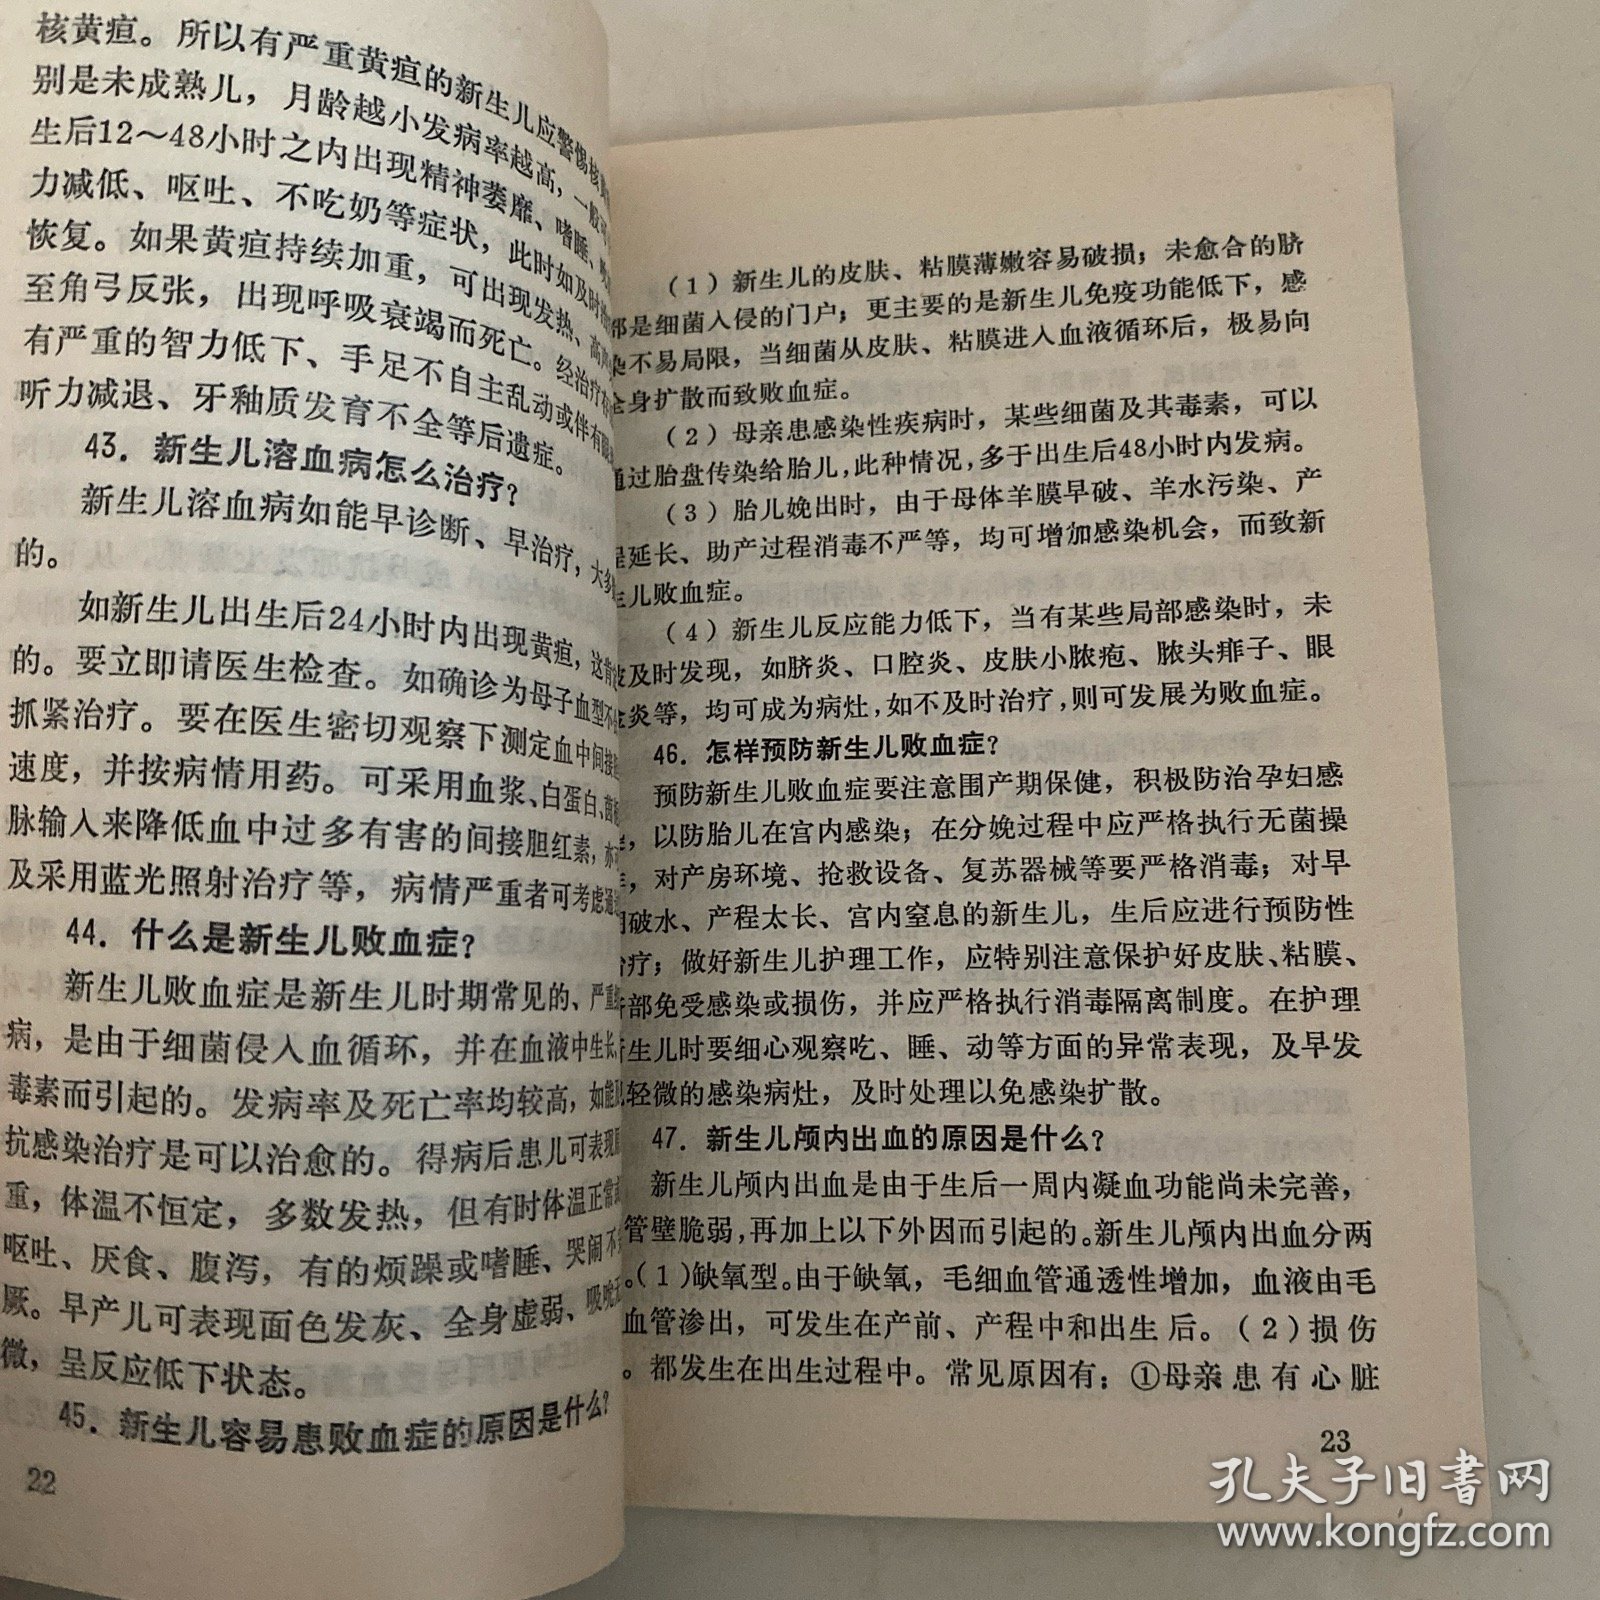 核黄疸。所以有严重黄疸的新生儿应警惕核
别是未成熟儿，月龄越小发病率越高，一般
生后12～48小时之内出现精神萎靡、嗜睡、
力减低、呕吐、不吃奶等症状，此时如及时
恢复。如果黄疸持续加重，可出现发热、高
至角弓反张，出现呼吸衰竭而死亡。经治疗
有严重的智力低下、手足不自主乱动或伴有
听力减退、牙釉质发育不全等后遗症。
43．新生儿溶血病怎么治疗？
新生儿溶血病如能早诊断、早治疗，大多
的。
如新生儿出生后24小时内出现黄疸，这
的。要立即请医生检查。如确诊为母子血型不
抓紧治疗。要在医生密切观察下测定血中间接
速度，并按病情用药。可采用血浆、白蛋白、菌
脉输入来降低血中过多有害的间接胆红素，亦
及采用蓝光照射治疗等，病情严重者可考虑通
44．什么是新生儿败血症？
新生儿败血症是新生儿时期常见的、严重
病，是由于细菌侵入血循环，并在血液中生长、
毒素而引起的。发病率及死亡率均较高，如能
抗感染治疗是可以治愈的。得病后患儿可表现
重，体温不恒定，多数发热，但有时体温正常
呕吐、厌食、腹泻，有的烦躁或嗜睡、哭闹不
厥。早产儿可表现面色发灰、全身虚弱、吸吮
微，呈反应低下状态。
45．新生儿容易患败血症的原因是什么？
22
（1）新生儿的皮肤、粘膜薄嫩容易破损；未愈合的脐
部是细菌入侵的门户；更主要的是新生儿免疫功能低下，感
染不易局限，当细菌从皮肤、粘膜进入血液循环后，极易向
全身扩散而致败血症。
（2）母亲患感染性疾病时，某些细菌及其毒素，可以
通过胎盘传染给胎儿，此种情况，多于出生后48小时内发病。
（3）胎儿娩出时，由于母体羊膜早破、羊水污染、产
程延长、助产过程消毒不严等，均可增加感染机会，而致新
生儿败血症。
（4）新生儿反应能力低下，当有某些局部感染时，未
及时发现，如脐炎、口腔炎、皮肤小脓疱、脓头痱子、眼
炎等，均可成为病灶，如不及时治疗，则可发展为败血症。
46．怎样预防新生儿败血症？
预防新生儿败血症要注意围产期保健，积极防治孕妇感
，以防胎儿在宫内感染；在分娩过程中应严格执行无菌操
，对产房环境、抢救设备、复苏器械等要严格消毒；对早
破水、产程太长、宫内窒息的新生儿，生后应进行预防性
疗；做好新生儿护理工作，应特别注意保护好皮肤、粘膜、
部免受感染或损伤，并应严格执行消毒隔离制度。在护理
生儿时要细心观察吃、睡、动等方面的异常表现，及早发
轻微的感染病灶，及时处理以免感染扩散。
47．新生儿颅内出血的原因是什么？
新生儿颅内出血是由于生后一周内凝血功能尚未完善，
管壁脆弱，再加上以下外因而引起的。新生儿颅内出血分两
。（1）缺氧型。由于缺氧，毛细血管通透性增加，血液由毛
血管渗出，可发生在产前、产程中和出生后。（2）损伤
。都发生在出生过程中。常见原因有：①母亲患有心脏
23
孔夫子旧书网
www.kongfz.com